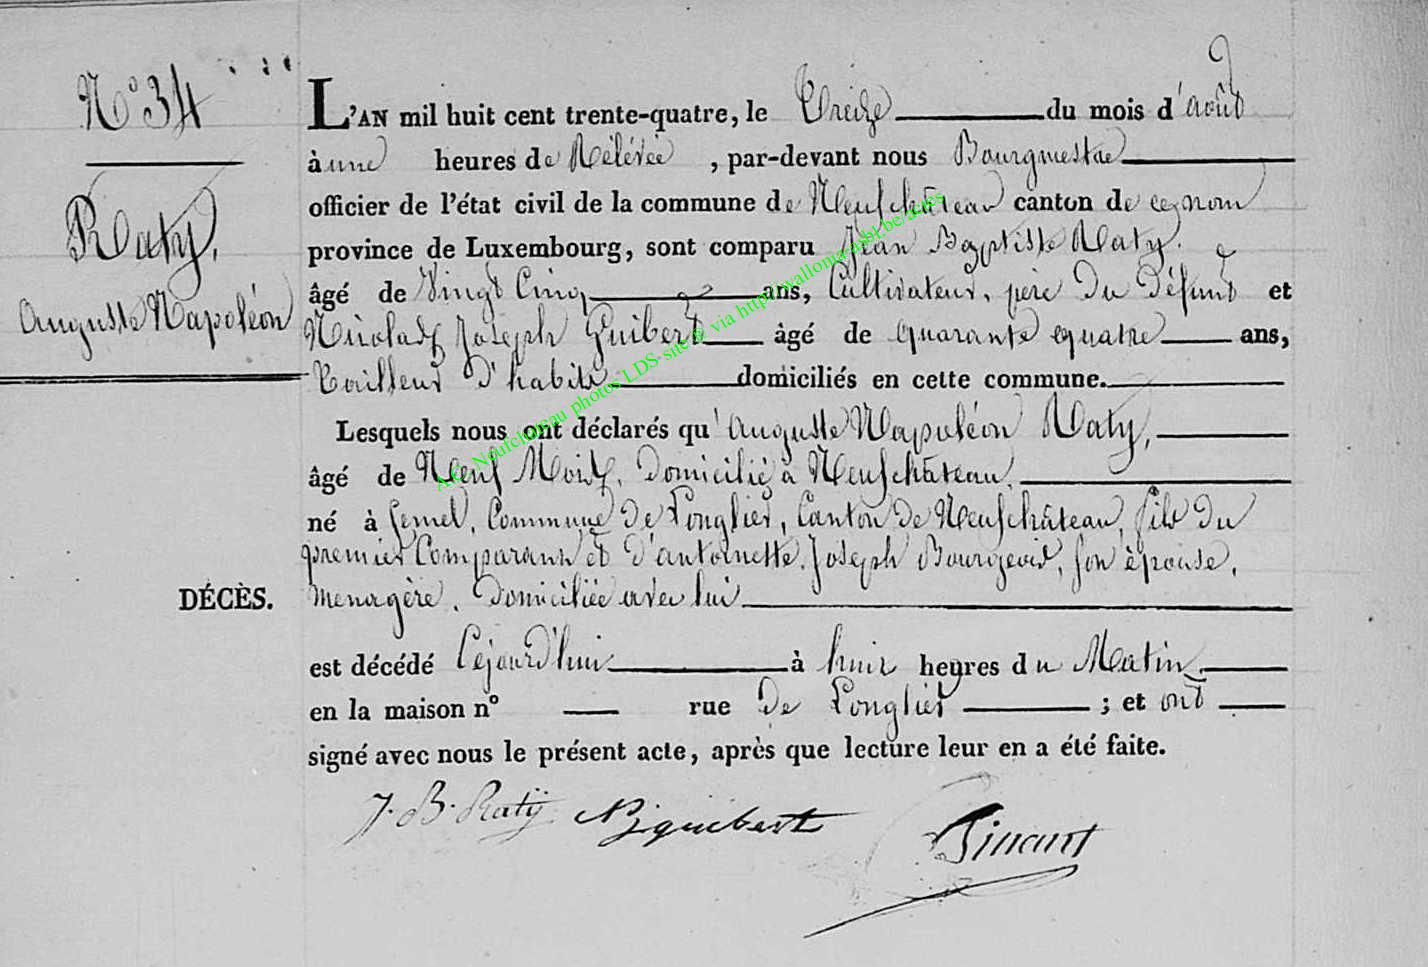 N° 34
Raty,
Auguste Napoléon
DÉCÈS.
L'AN mil huit cent trente-quatre, le Treize du mois d'août
à une heures de Rélévée, par-devant nous Bourgmestre
officier de l'état civil de la commune de Neufchâteau canton de ce nom
province de Luxembourg, sont comparu Jean Baptiste Raty.
âgé de Vingt Cinq ans, Cultivateur, père du défunt et
Nicolas Joseph Guibert âgé de quarante quatre ans,
Tailleur d'habits domiciliés en cette commune.
Lesquels nous ont déclarés qu'Auguste Napoléon Raty,
âgé de Neuf Mois, domicilié à Neufchâteau,
né à Semel, Commune de Longlier, Canton de Neufchâteau, fils du
premier Comparant et d'antoinette Joseph Bourgeois, son épouse,
menagère, domiciliée avec lui
est décédé Cejourd'hui à huit heures du Matin
en la maison n° rue de Longlier ; et ont
signé avec nous le présent acte, après que lecture leur en a été faite.
J. B. Raty NJguibert
A.C. Neufchateau photos LDS-site @ via http://wallonia-asbl.be/actes